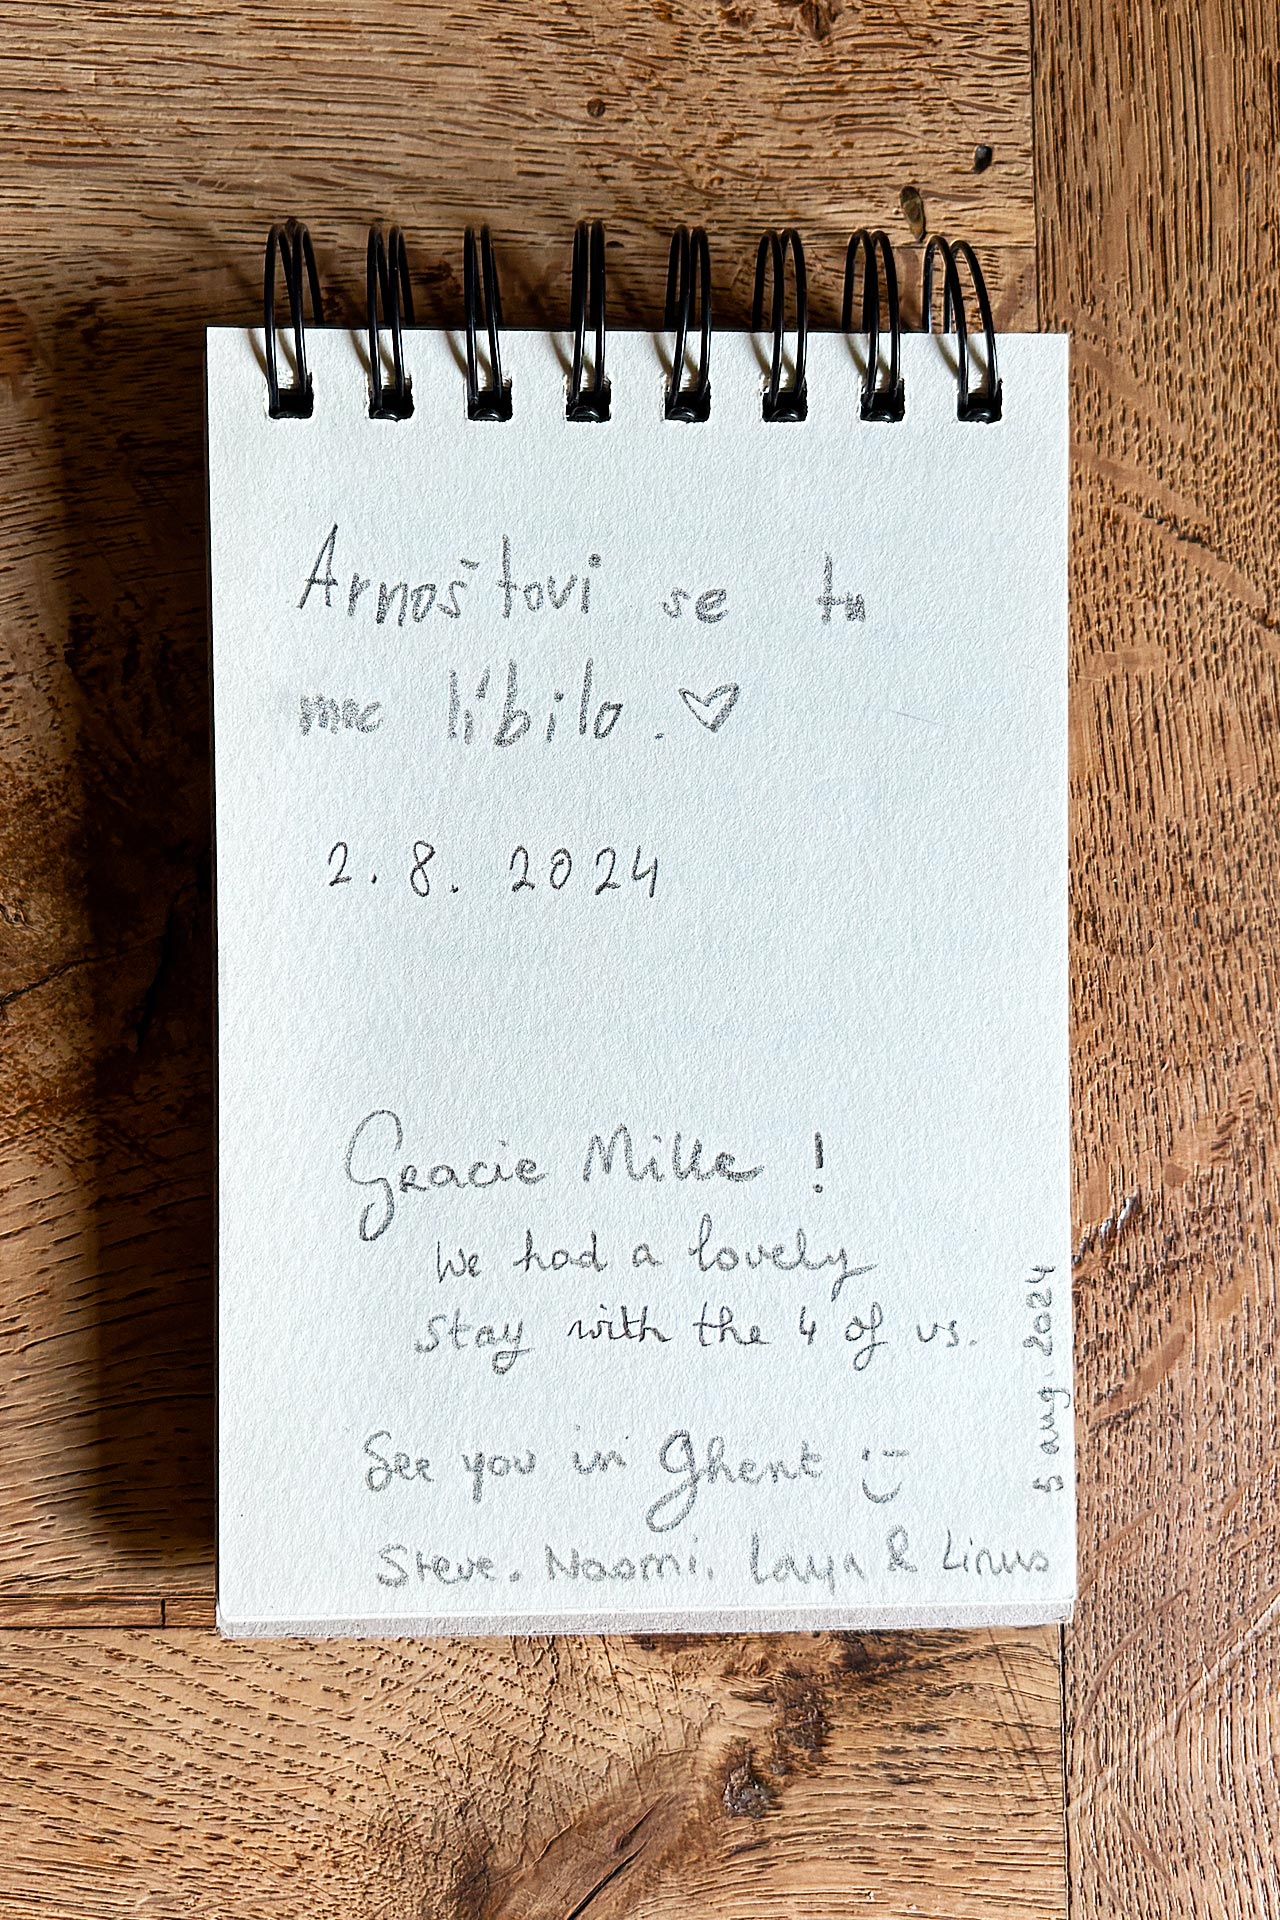 Arnoštovi se tu
moc líbilo. ♡
2. 8. 2024
Gracie Mille !
We had a lovely
stay with the 4 of us.
See you in Ghent :-)
Steve. Naomi. Laya & Linus
5 aug. 2024